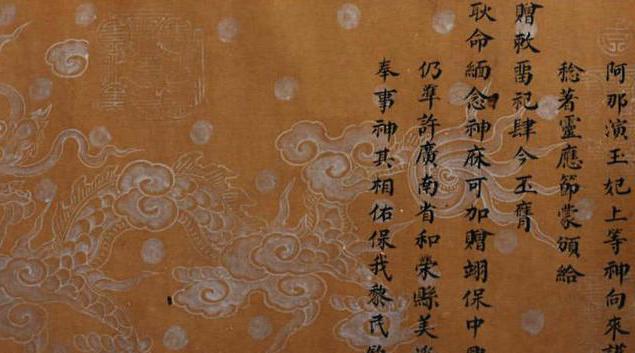 阿那演王妃上等神向來護
稔著靈應節蒙頒給
贈敕留祀肆今丕膺
耿命緬念神庥可加贈翊保中興
仍準許廣南省和榮縣美溪
奉事神其相佑保我黎民欽